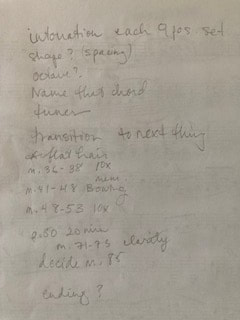 intonation each pos. set
shape? (spacing)
octave?
Name this chord
tuner
transition to next thing
flat hair
m. 36-38 10x
m. 41-48 Bowing
m. 48-53 10x
2:30 20 min
m. 71-75 clarity
decide m. 85
ending?